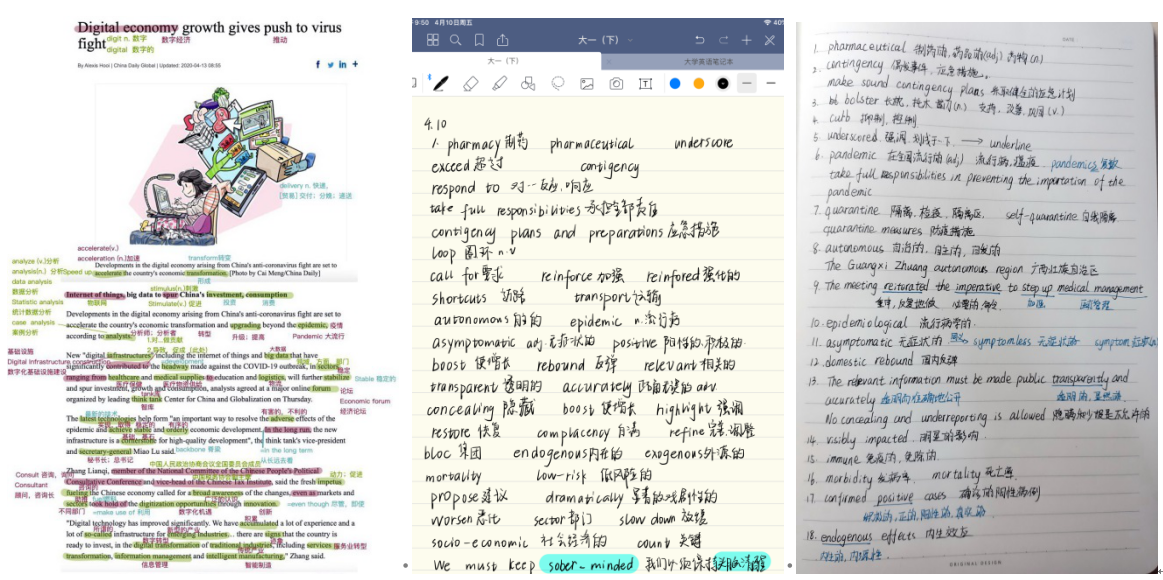 Digital economy growth gives push to virus
fight
digit n. 数字
digital 数字的
数字经济
推动
By Alexis Hooi | China Daily Global | Updated: 2020-04-13 08:55
delivery n. 快递,
[贸易] 交付; 分娩; 递送
accelerate(v.)
acceleration (n.)加速
transform转变
Developments in the digital economy arising from China's anti-coronavirus fight are set to
accelerate the country's economic transformation. [Photo by Cai Meng/China Daily]
analyze (v.)分析
analysis(n.) 分析
Speed up
data analysis
数据分析
Statistic analysis
统计数据分析
case analysis
案例分析
stimulus(n.)刺激
Stimulate(v.) 促进
Internet of things, big data to spur China's investment, consumption
物联网
投资
消费
Developments in the digital economy arising from China's anti-coronavirus fight are set to
accelerate the country's economic transformation and upgrading beyond the epidemic,
疫情
according to analysts.
分析师; 分析者
转型
升级; 提高
Pandemic 大流行
基础设施
Digital infrastructure construction
数字化基础设施建设
大数据
New "digital infrastructures" including the internet of things and big data that have
significantly contributed to the headway made against the COVID-19 outbreak, in sectors
ranging from healthcare and medical supplies to education and logistics, will further stabilize
Stable 稳定的
and spur investment, growth and consumption, analysts agreed at a major online forum
论坛
organized by leading think tank Center for China and Globalization on Thursday.
智库
Economic forum
经济论坛
The latest technologies help form "an important way to resolve the adverse effects of the
epidemic and achieve stable and orderly economic development. In the long run, the new
infrastructure is a cornerstone for high-quality development", the think tank's vice-president
and secretary-general Miao Lu said.
秘书长; 总书记
backbone 脊梁
=in the long term
从长远去看
中国人民政治协商会议全国委员会成员
Zhang Lianqi, member of the National Committee of the Chinese People's Political
Consultative Conference and vice-head of the Chinese Tax Institute, said the fresh impetus
动力; 促进
Consult 咨询,
Consultant
顾问, 咨询长
fueling the Chinese economy called for a broad awareness of the changes, even as markets and
sectors took hold of the digitization opportunities through innovation.
=even though 尽管, 即使
不同部门
=make use of 利用
数字化机遇
创新
"Digital technology has improved significantly. We have accumulated a lot of experience and a
lot of so-called infrastructure for emerging industries... there are signs that the country is
ready to invest, in the digital transformation of traditional industries, including services
服务业转型
transformation, information management and intelligent manufacturing," Zhang said.
信息管理
智能制造
9:50 4月10日周五
大一（下）
大一（下）
大学英语笔记本
4.10
1. pharmacy 制药 pharmaceutical underscore
exceed 超过 contigency
respond to 对…反应,响应
take full responsibilities 承担全部责任
contigency plans and preparations 应急措施
loop 圆环 n.v
call for 要求 reinforce 加强 reinfored 强化的
shortcuts 切路 transport 运输
autonomous 自治的 epidemic n.流行病
asymptomatic adj.无症状的 positive 阳性的.积极的.
boost 使增长 rebound 反弹 relevant 相关的
transparent 透明的 accurately 正确无误的 adv
concealing 隐藏 boost 使增长 highlight 强调
restore 恢复 complacency 自满 refine 完善.调整
bloc 集团 endogenous 内在的 exogenous 外源的
mortality low-risk 低风险的
propose 建议 dramatically 显著的戏剧性的
worsen 恶化 sector 部门 slow down 放缓
socio-economic 社会经济的 count 关键
We must keep sober-minded 我们必须保持头脑清醒
DATE
1. pharmaceutical 制药的,药品的(adj) 药物(n)
2. contingency 偶发事件, 应急措施。
make sound contingency plans 采取健全的应急计划
3. bolster 长枕, 支持, 改善, 巩固(v.)
4. curb 抑制, 控制
5. underscored 强调, 划线于下. → underline
6. pandemic 在全国流行的(adj) 流行病,瘟疫. pandemics 复数
take full responsibilities in preventing the importation of the
pandemic
7. quarantine 隔离, 检疫, 隔离区. self-quarantine 自我隔离
quarantine measures 防疫措施
8. autonomous 自治的, 自主的, 自发的
The Guangxi Zhuang autonomous region 广西壮族自治区
9. The meeting reiturated the imperative to step up medical management
10. epidemiological 流行病学的.
11. asymptomatic 无症状的 symptomless 无症状的
12. domestic rebound 国内反弹
13. The relevant information must be made public transparently and
acurately
No concealing and underreporting is allowed
14. visibly impacted. 明显的影响.
15. immune 免疫的, 免除的.
16. morbidity 发病率. mortality 死亡率
17. confirmed positive cases 确诊的阳性病例
18. endogenous effects 内生效应
ORIGINAL DESIGN